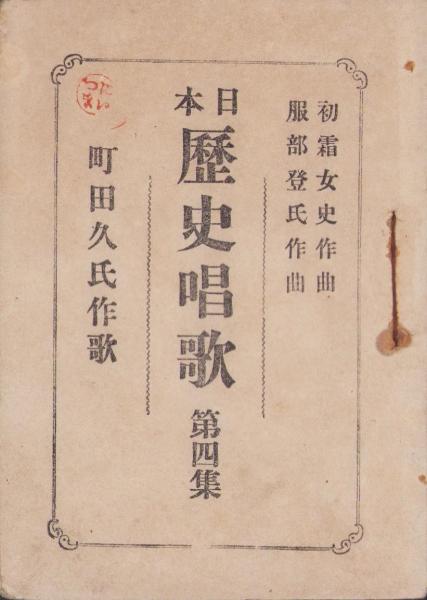 初霜女史作曲
服部登氏作曲
日本
歷史唱歌 第四集
町田久氏作歌